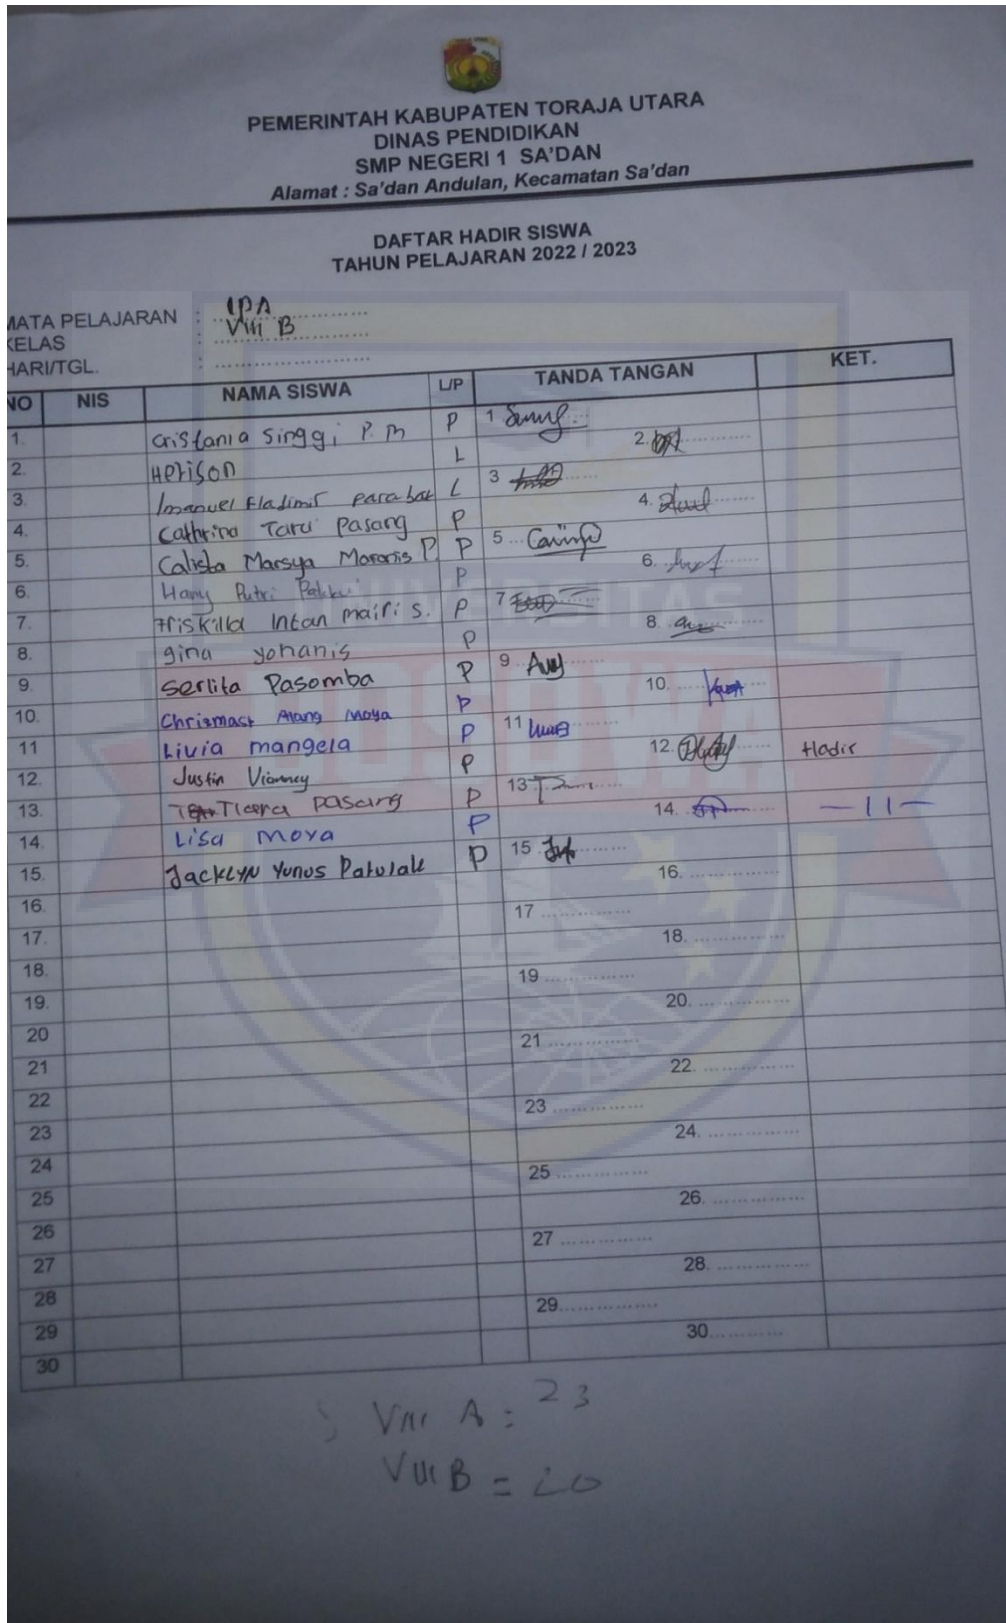 PEMERINTAH KABUPATEN TORAJA UTARA
DINAS PENDIDIKAN
SMP NEGERI 1 SA'DAN
Alamat : Sa'dan Andulan, Kecamatan Sa'dan
DAFTAR HADIR SISWA
TAHUN PELAJARAN 2022 / 2023
MATA PELAJARAN : IPA
KELAS : VIII B
HARI/TGL. :
NO NIS NAMA SISWA L/P TANDA TANGAN KET.
1. Cristania Singgi P. M P 1
2. Herison L 2.
3. Imanuel Fladimir Parabak L 3
4. Cathrina Taru Pasang P 4.
5. Calista Marsya Moronis P. P 5
6. Hany Putri P 6.
7. Friskilla Intan Mairi S. P 7
8. gina yohanis P 8.
9. Serlita Pasomba P 9
10. Chrismast Alang Moya P 10.
11 Livia mangela P 11
12. Justin Vianney P 12. Hadir
13. Tiara Pasang P 13 — 11 —
14. Lisa Moya P 14.
15. Jacklyn Yunus Patulak P 15
16. 16.
17. 17
18. 18.
19. 19
20 20.
21 21
22 22.
23 23
24 24.
25 25
26 26.
27 27
28 28.
29 29
30 30
VIII A : 23
VIII B = 20
UNIVERSITAS
BOSOWA